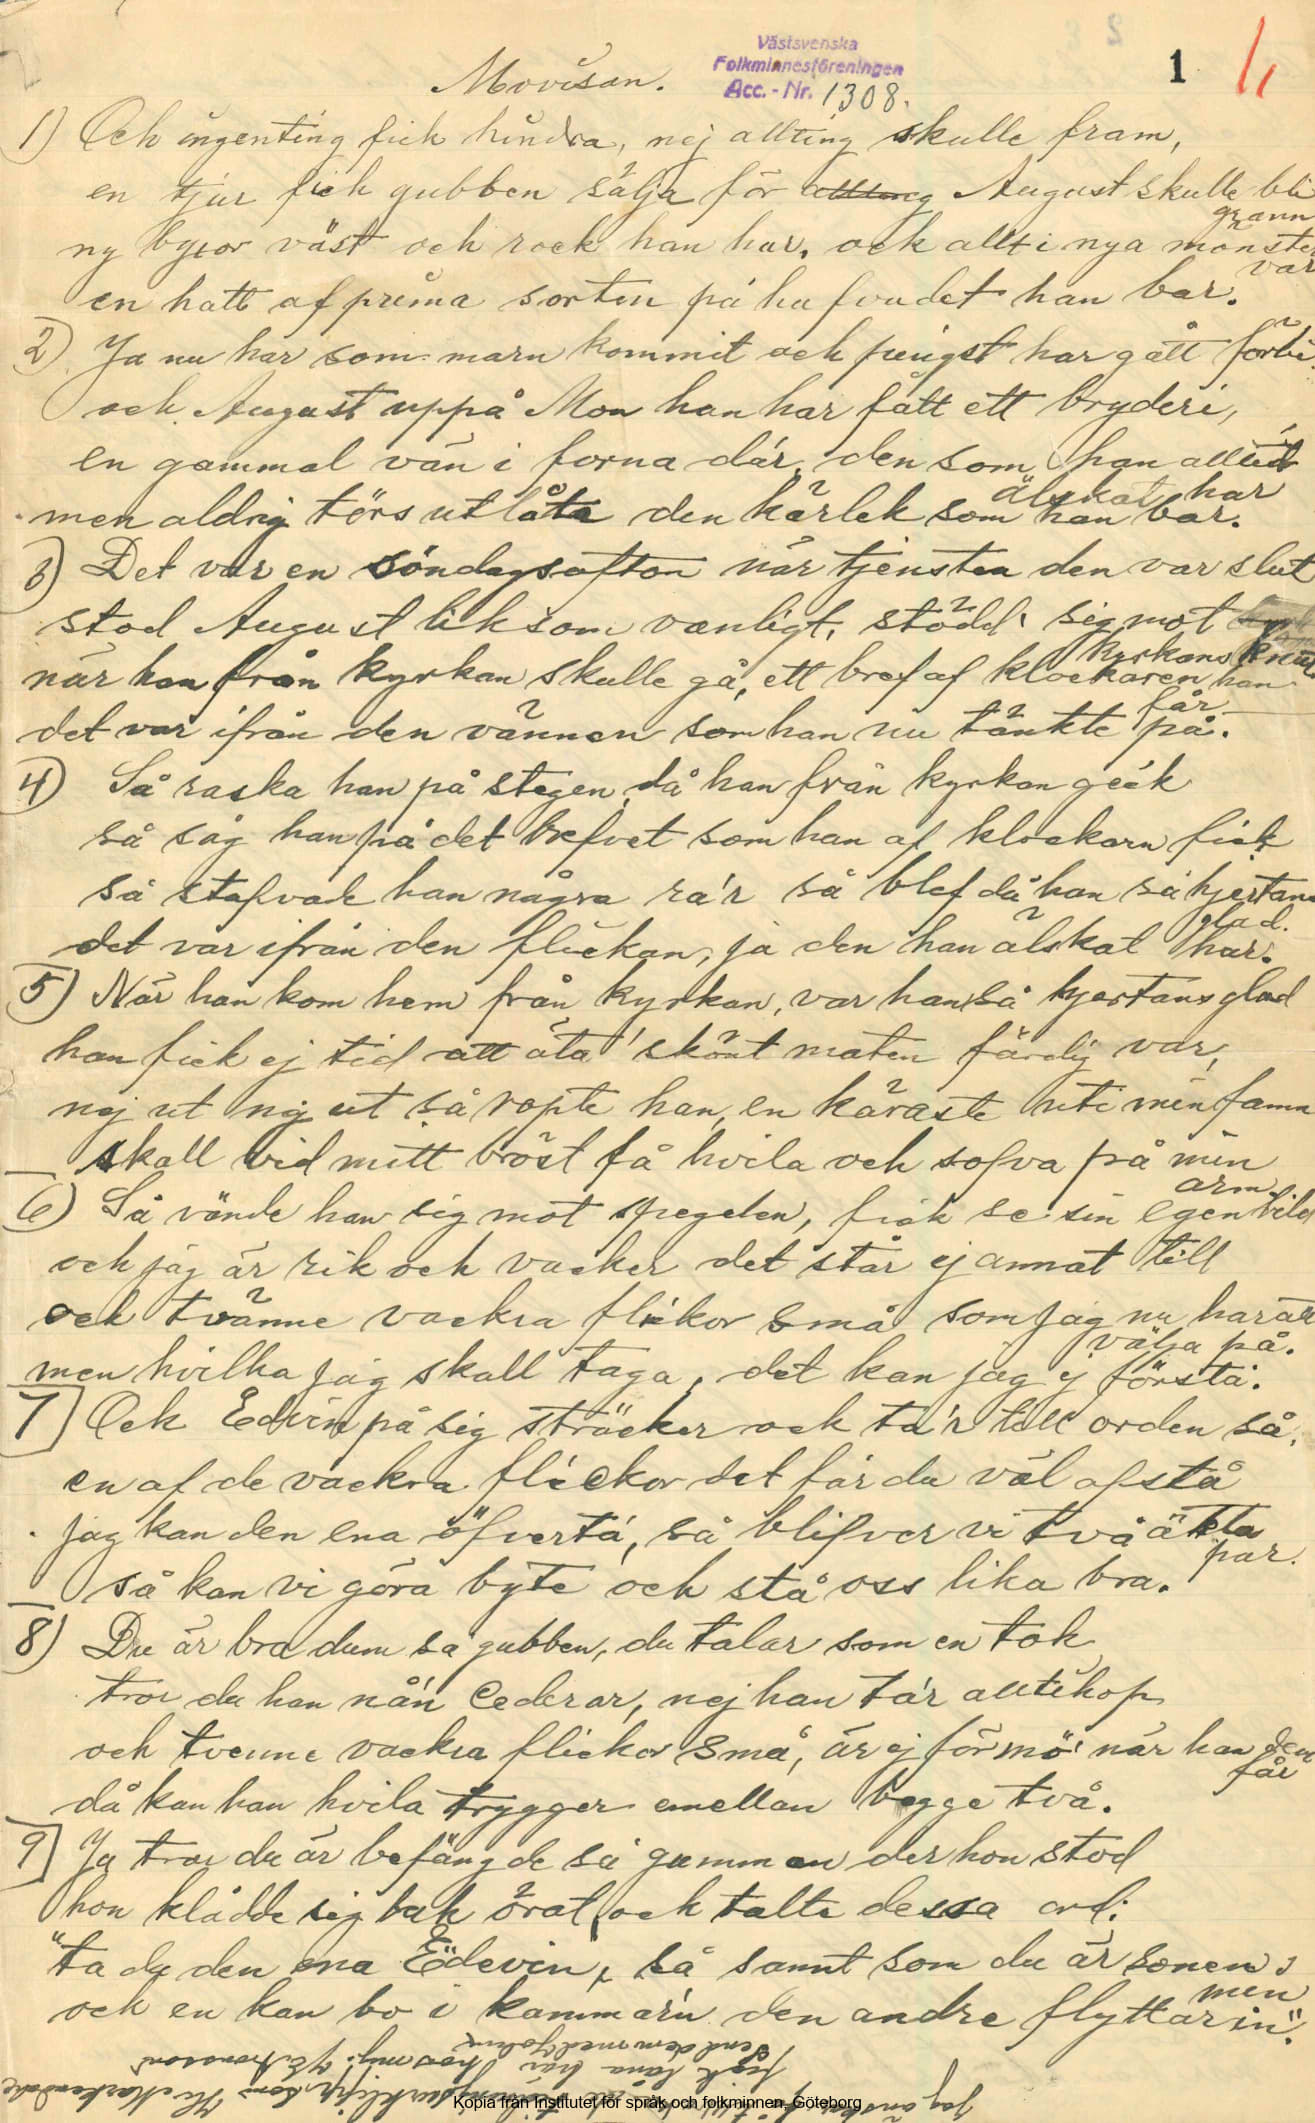 Västsvenska
Folkminnesföreningen
Acc.-Nr. 1308.
1
Movisan.
1) Och ingenting fick hindra, nej allting skulle fram,
en tjur fick gubben sälja för August skulle bli
grann
ny byxor väst och rock han har, och allt i nya mönster
var
en hatt af prima sorten på hufvudet han bar.
2) Ja nu har sommarn kommit och pingst har gått förbi
och August uppå Mon han har fått ett bryderi,
en gammal vän i forna dár, den som han alltid
älskat har
men aldrig törs utlåta den kärlek som han bar.
3) Det var en söndagsafton när tjensten den var slut
stod August liksom vanligt, stödd sig mot
kyrkans knut
när han från kyrkan skulle gå, ett bref af klockaren han
får
det var ifrån den vännen som han nu tänkte på.
4) Så raska han på stegen, då han från kyrkan gick
så såg han på det brefvet som han af klockarn fick
så stafvade han några ra'r så blef då han så hjertans
glad.
det var ifrån den flickan, ja den han älskat har.
5) När han kom hem från kyrkan, var han så hjertans glad
han fick ej tid att äta skönt maten färdig var,
nej ut nej ut så ropte han, en käraste uti min famn
skall vid mitt bröst få hvila och sofva på min
arm.
6) Så vände han sig mot spegelen, fick se sin egen bild
och jag är rik och vacker det står ej annat till
och tvänne vackra flickor små som jag nu har att
välja på.
men hvilka jag skall taga, det kan jag ej förstå.
7) Ock Edvin på sig sträcker ock ta'r till orden så,
en af de vackra flickor det får du väl afstå
jag kan den ena öfverta, så blifver vi två äkta
par.
så kan vi göra byte och stå oss lika bra.
8) Du är bra dum sa gubben, du talar som en tok
tror du han nå'n Cederar, nej han ta'r alltihop
och tvenne vackra flickor små, är ej för mö' när han dem
får
då kan han hvila trygger emellan begge två.
9) Ja tror du är befängde sa gumman der hon stod
hon klådde sig bak örat, och talte dessa ord:
"ta du den ena Edevin, så sannt som du är sonen
men
och en kan bo i kammar'n den andre flyttar in".
Jag önskar
fick låna här hos mig.
Send dem med
Kopia från Institutet för språk och folkminnen, Göteborg